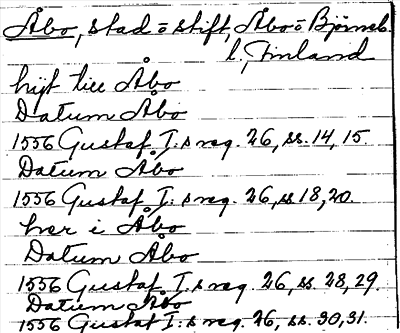 Åbo, stad o stift, Åbo o Björneb.
l, Finland
hijt till Åbo
Datum Åbo
1556 Gustaf I:s reg. 26, ss. 14, 15.
Datum Åbo
1556 Gustaf I: s reg. 26, ss 18, 20.
her i Åbo
Datum Åbo
1556 Gustaf I: s reg. 26, ss. 28, 29.
Datum Åbo
1556 Gustaf I: s reg. 26, ss. 30, 31.